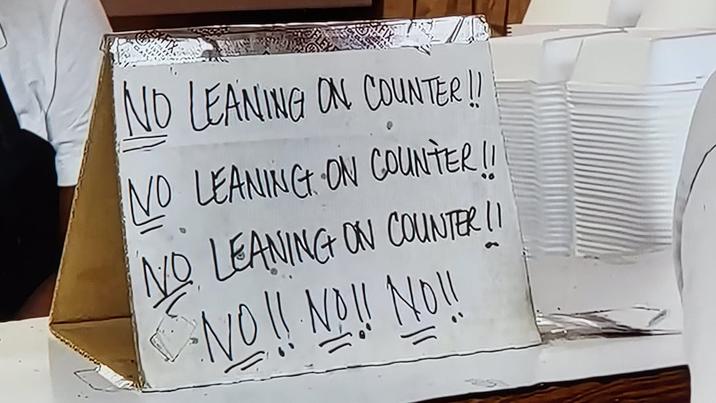 NO LEANING ON COUNTER!!
NO LEANING ON COUNTER!!
NO LEANING ON COUNTER!!
NO!! NO!! NO!!